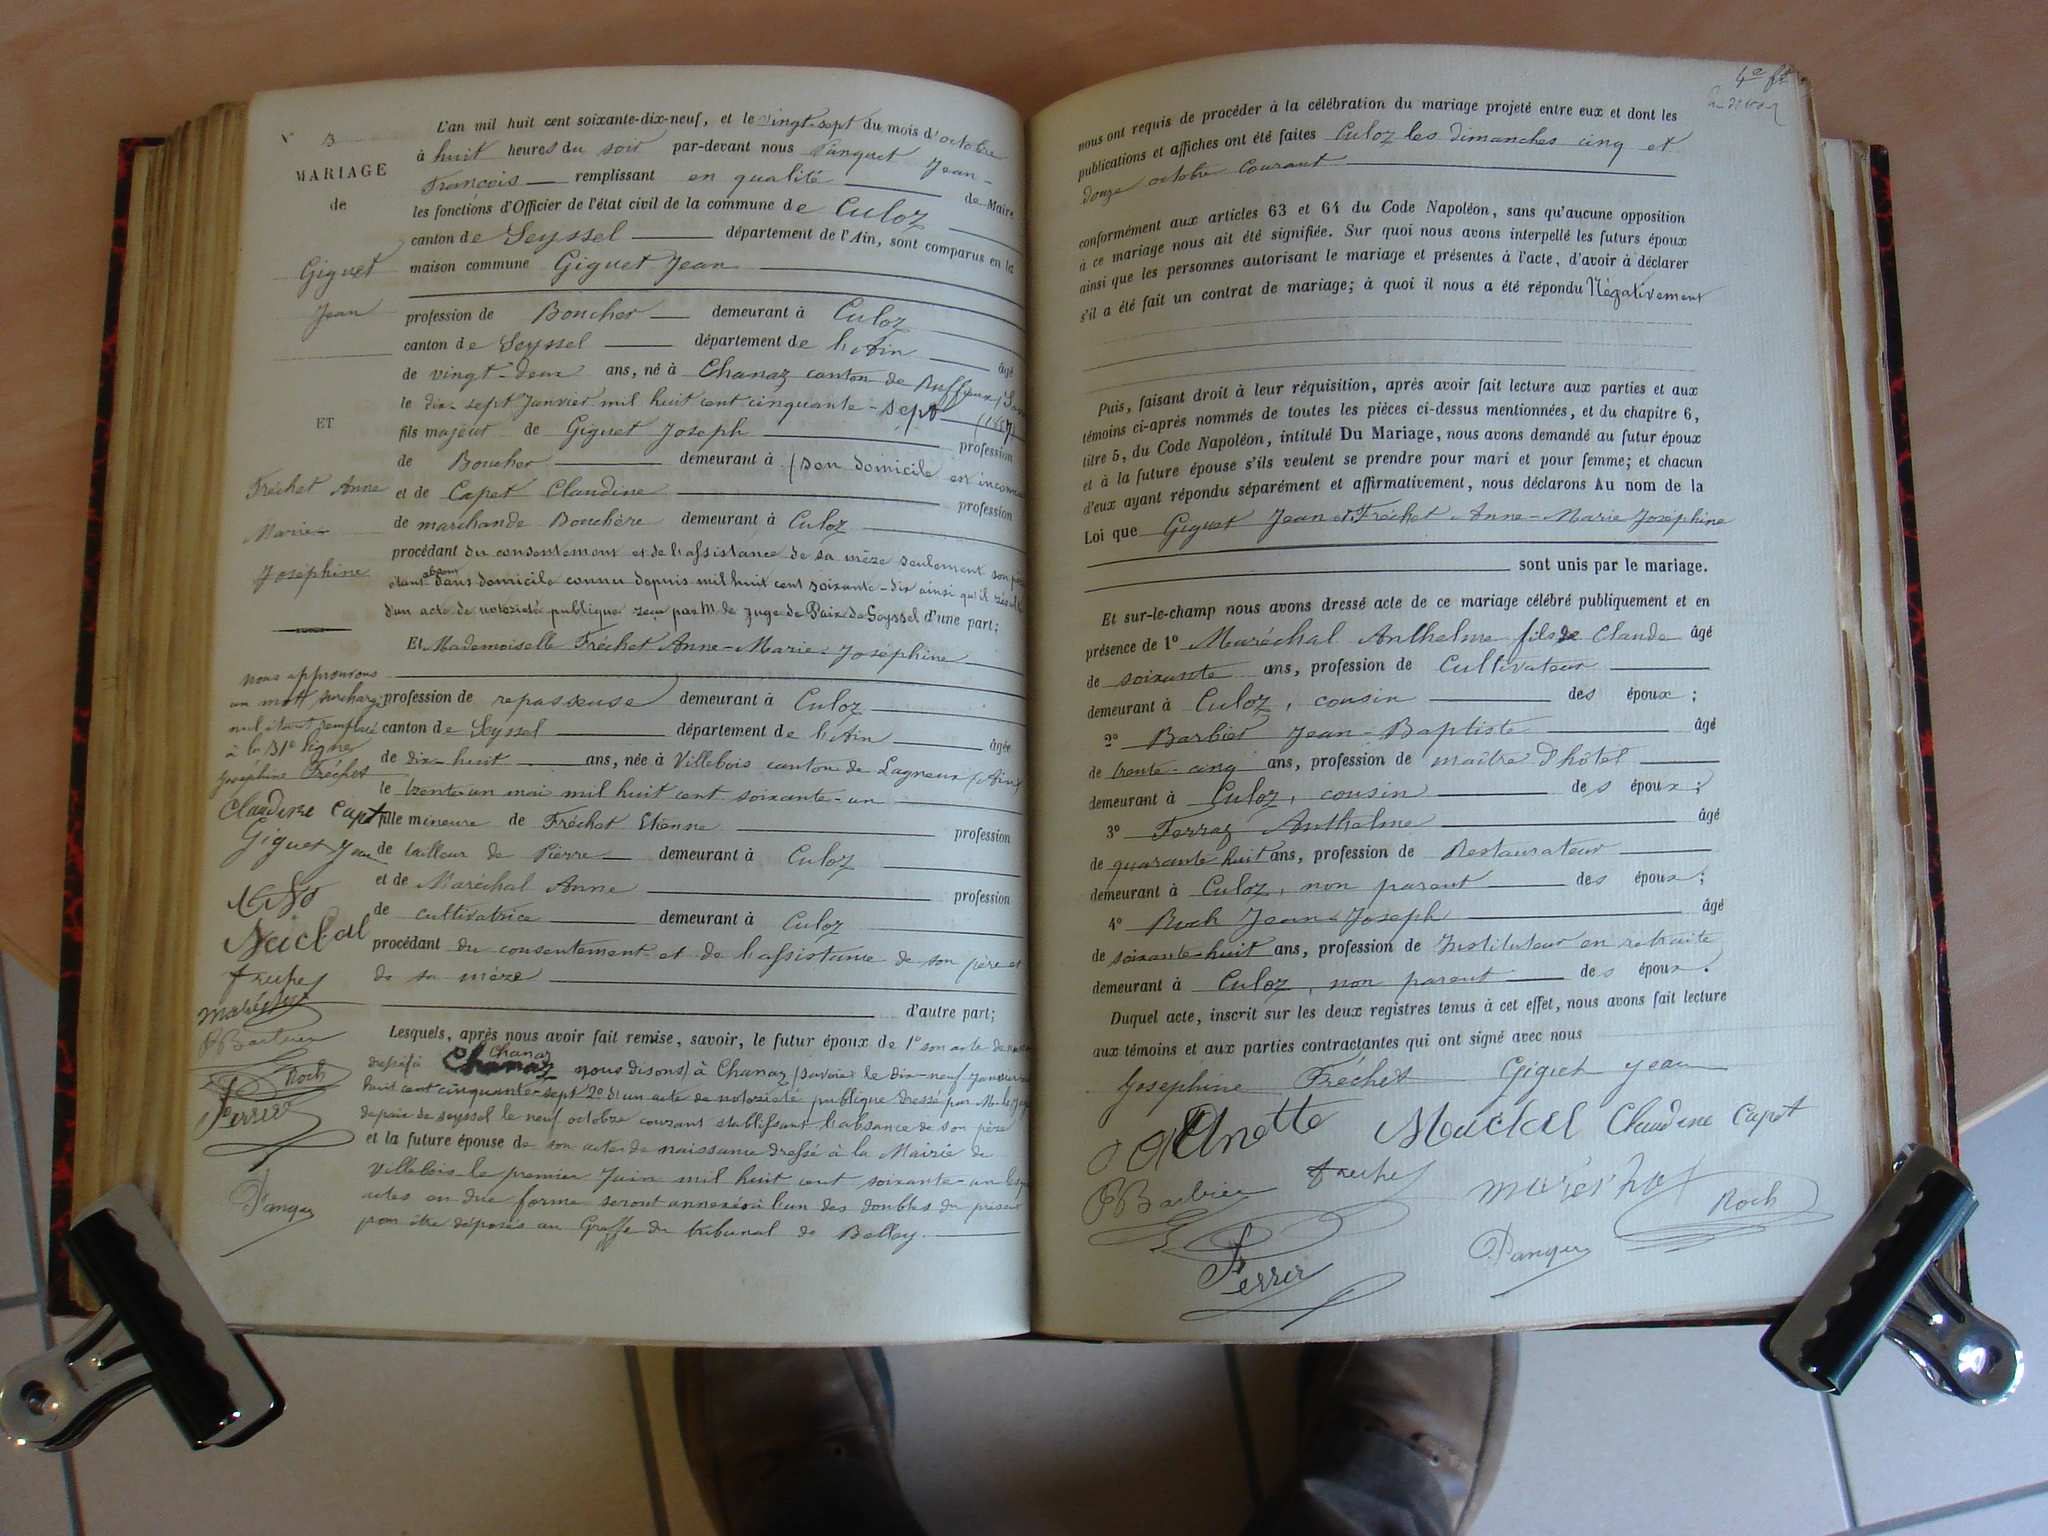 MARIAGE
de
Giguet
Jean
ET
Fréchet Anne
Marie
Joséphine
L'an mil huit cent soixante-dix-neuf, et le vingt-sept du mois d'octobre
à huit heures du soir par-devant nous Jean-
François remplissant en qualité de Maire
les fonctions d'Officier de l'état civil de la commune de Culoz
canton de Seyssel département de l'Ain, sont comparus en la
maison commune Giguet Jean
profession de Boucher demeurant à Culoz
canton de Seyssel département de l'Ain âgé
de vingt-deux ans, né à Chanaz canton de Ruffieux
le dix-sept Janvier mil huit cent cinquante-sept (1857)
fils majeur de Giguet Joseph profession
de Boucher demeurant à (son domicile est inconnu
et de Capet Claudine profession
de marchande Bouchère demeurant à Culoz
procédant du consentement et de l'assistance de sa mère seulement son père
étant absent sans domicile connu depuis mil huit cent soixante-dix ainsi qu'il
d'un acte de notoriété publique reçu par M. le Juge de Paix de Seyssel d'une part;
Et Mademoiselle Fréchet Anne-Marie-Joséphine
profession de repasseuse demeurant à Culoz
canton de Seyssel département de l'Ain âgée
de dix-huit ans, née à Villebois canton de Lagneux (Ain)
le trente-un mai mil huit cent soixante-un
fille mineure de Fréchet Etienne profession
de tailleur de Pierre demeurant à Culoz
et de Maréchal Anne profession
de cultivatrice demeurant à Culoz
procédant du consentement et de l'assistance de son père et
de sa mère
d'autre part;
Lesquels, après nous avoir fait remise, savoir, le futur époux de 1° son acte de
dressé à Chanaz nous disons) à Chanaz (Savoie) le dix-neuf Janvier
huit cent cinquante-sept 2° d'un acte de notoriété publique dressé par M. le Juge
de paix de Seyssel le neuf octobre courant établissant l'absence de son père
et la future épouse de son acte de naissance dressé à la Mairie de
Villebois le premier Juin mil huit cent soixante-un
actes en due forme seront annexés à l'un des doubles du présent
pour être déposés au Greffe du tribunal de Belley
nous approuvons
un mot surchargé
à la 31e ligne
Joséphine Fréchet
Claudine Capet
Giguet Jean
Roch
Ferrer
nous ont requis de procéder à la célébration du mariage projeté entre eux et dont les
publications et affiches ont été faites Culoz les dimanches cinq et
douze octobre courant
conformément aux articles 63 et 64 du Code Napoléon, sans qu'aucune opposition
à ce mariage nous ait été signifiée. Sur quoi nous avons interpellé les futurs époux
ainsi que les personnes autorisant le mariage et présentes à l'acte, d'avoir à déclarer
s'il a été fait un contrat de mariage; à quoi il nous a été répondu Négativement
Puis, faisant droit à leur réquisition, après avoir fait lecture aux parties et aux
témoins ci-après nommés de toutes les pièces ci-dessus mentionnées, et du chapitre 6,
titre 5, du Code Napoléon, intitulé Du Mariage, nous avons demandé au futur époux
et à la future épouse s'ils veulent se prendre pour mari et pour femme; et chacun
d'eux ayant répondu séparément et affirmativement, nous déclarons Au nom de la
Loi que Giguet Jean et Fréchet Anne-Marie Joséphine
sont unis par le mariage.
Et sur-le-champ nous avons dressé acte de ce mariage célébré publiquement et en
présence de 1° Maréchal Anthelme fils de Claude âgé
de soixante ans, profession de Cultivateur
demeurant à Culoz, cousin des époux;
2° Barbier Jean-Baptiste âgé
de trente-cinq ans, profession de maître d'hôtel
demeurant à Culoz, cousin des époux;
3° Ferraz Anthelme âgé
de quarante huit ans, profession de Restaurateur
demeurant à Culoz, non parent des époux;
4° Roch Jean-Joseph âgé
de soixante-huit ans, profession de Instituteur en retraite
demeurant à Culoz, non parent des époux.
Duquel acte, inscrit sur les deux registres tenus à cet effet, nous avons fait lecture
aux témoins et aux parties contractantes qui ont signé avec nous
Josephine Fréchet Giguet Jean
Claudine Capet
Roch
Ferrer